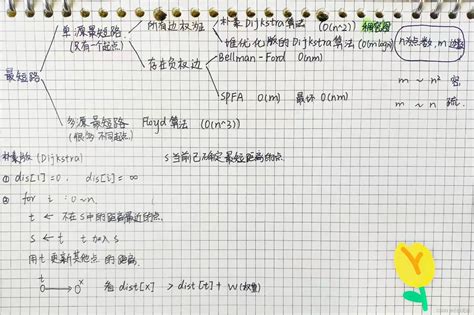 单源最短路 (只有一个起点)
所有边权为正
朴素Dijkstra算法 O(n^2) 稠密图
堆优化版的Dijkstra算法 O(mlogn)
n为点数, m边数
存在负权边
Bellman-Ford O(nm)
SPFA O(m) 最坏 O(nm)
m ~ n² 密
m ~ n 疏.
最短路
多源最短路 Floyd算法 (O(n^3))
(很多不同起点)
朴素版 (Dijkstra)
S 当前已确定最短距离的点
① dis[1]=0, dis[i]=∞
② for i : 0~n
t ← 不在S中的距离最近的点.
S ← t t加入S
用t更新其他点的距离.
t x
看dist[x] > dist[t] + w(权重)